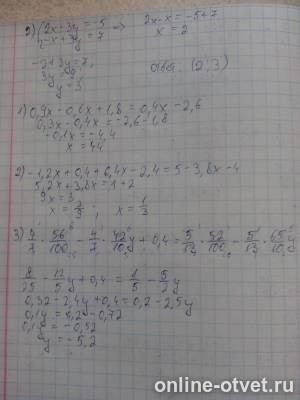 2) (2x+3y=-5 => 2x-x=-5+7
-x+3y=7 x=2
-2+3y=7, Ответ: (2;3)
3y=9
y=3
1) 0,9x-0,6x+1,8=0,4x-2,6
0,3x-0,4x=-2,6-1,8
-0,1x=-4,4
x=44
2) -1,2x+0,4+6,4x-2,4=5-3,8x-4
5,2x+3,8x=1+2
9x=3
x=3/9; x=1/3
3) 4/7·56/100-4/7·42/10y+0,4=5/13·52/100-5/13·65/10y
8/25-12/5y+0,4=1/5-5/2y
0,32-2,4y+0,4=0,2-2,5y
0,1y=0,2-0,72
0,1y=-0,52
y=-5,2
online-otvet.ru